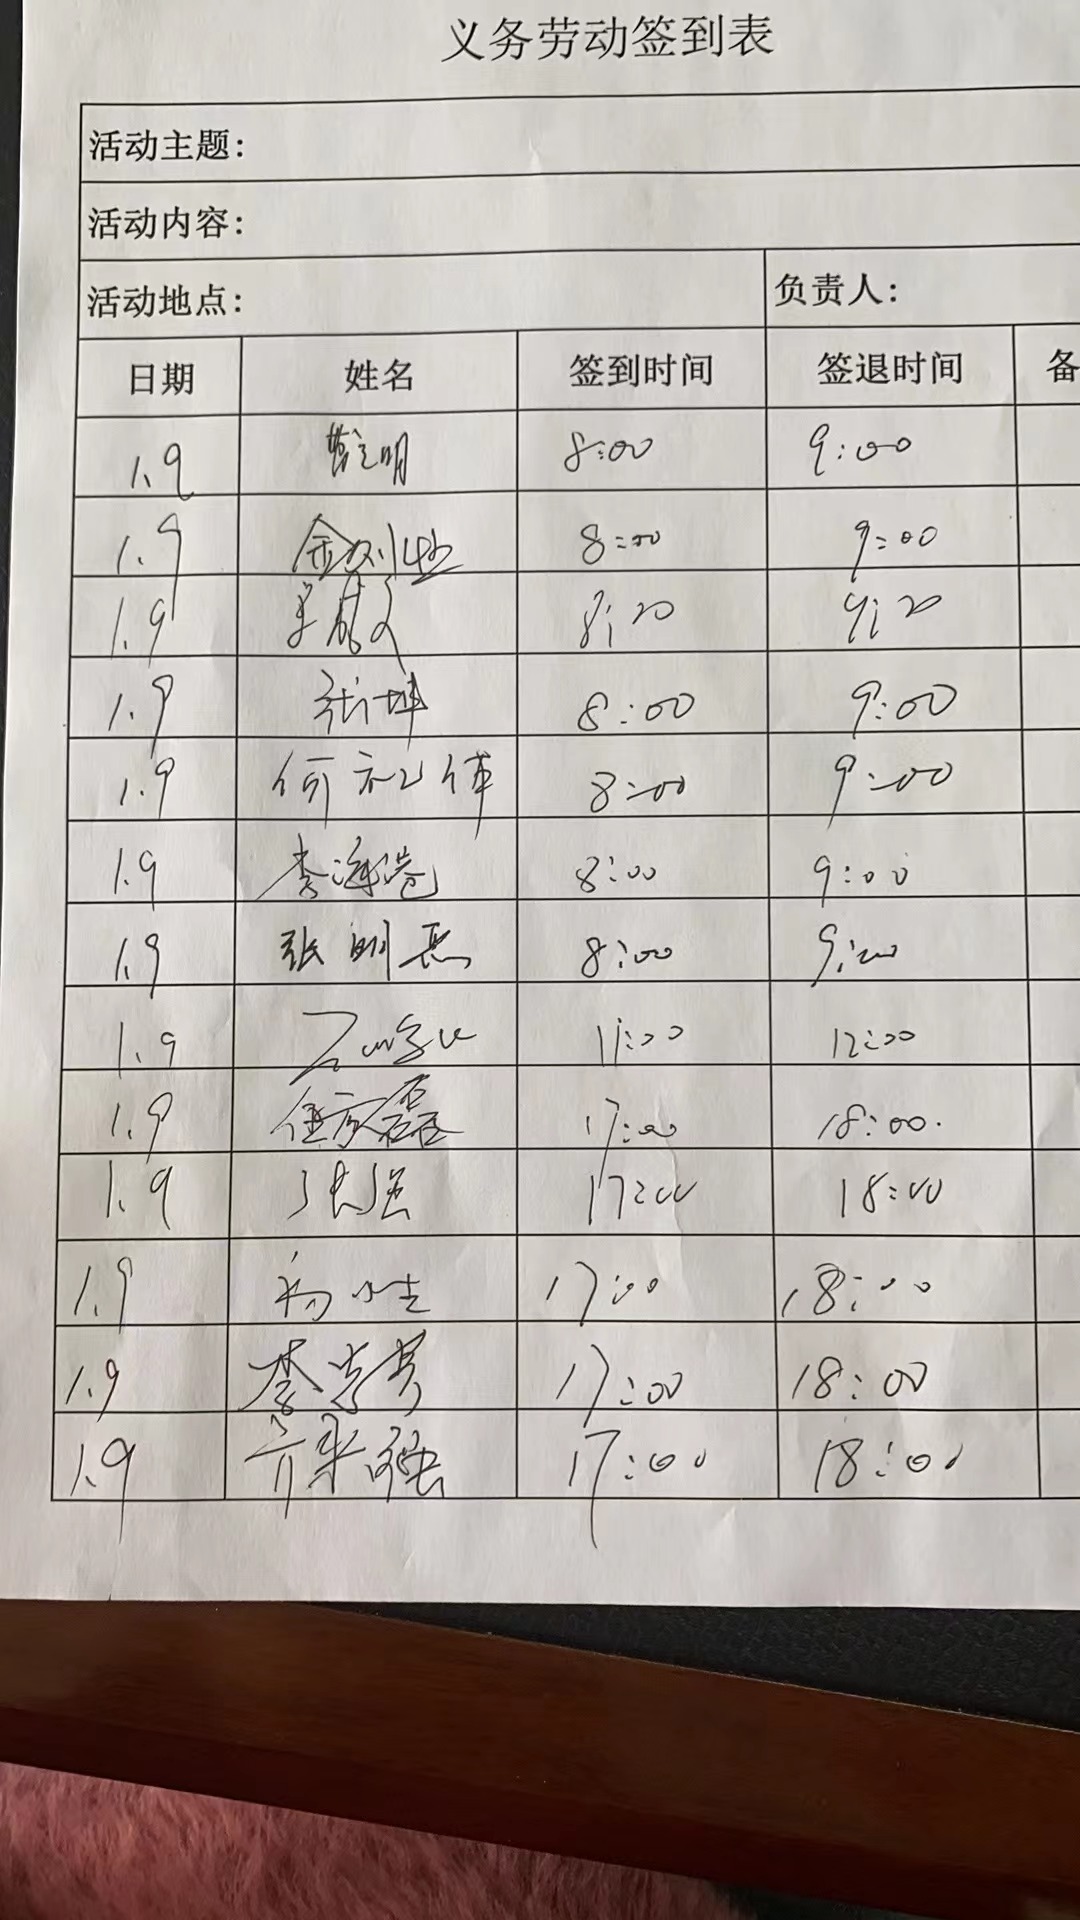 义务劳动签到表
活动主题:
活动内容:
活动地点: 负责人:
日期 姓名 签到时间 签退时间 备
1.9 8:00 9:00
1.9 8:00 9:00
1.9 8:20 9:20
1.9 张坤 8:00 9:00
1.9 何礼伟 8:00 9:00
1.9 李海港 8:00 9:00
1.9 张明亮 8:00 9:00
1.9 11:00 12:00
1.9 任彦磊 17:00 18:00.
1.9 张强 17:00 18:00
1.9 杨小生 17:00 18:00
1.9 李学芳 17:00 18:00
1.9 17:00 18:00